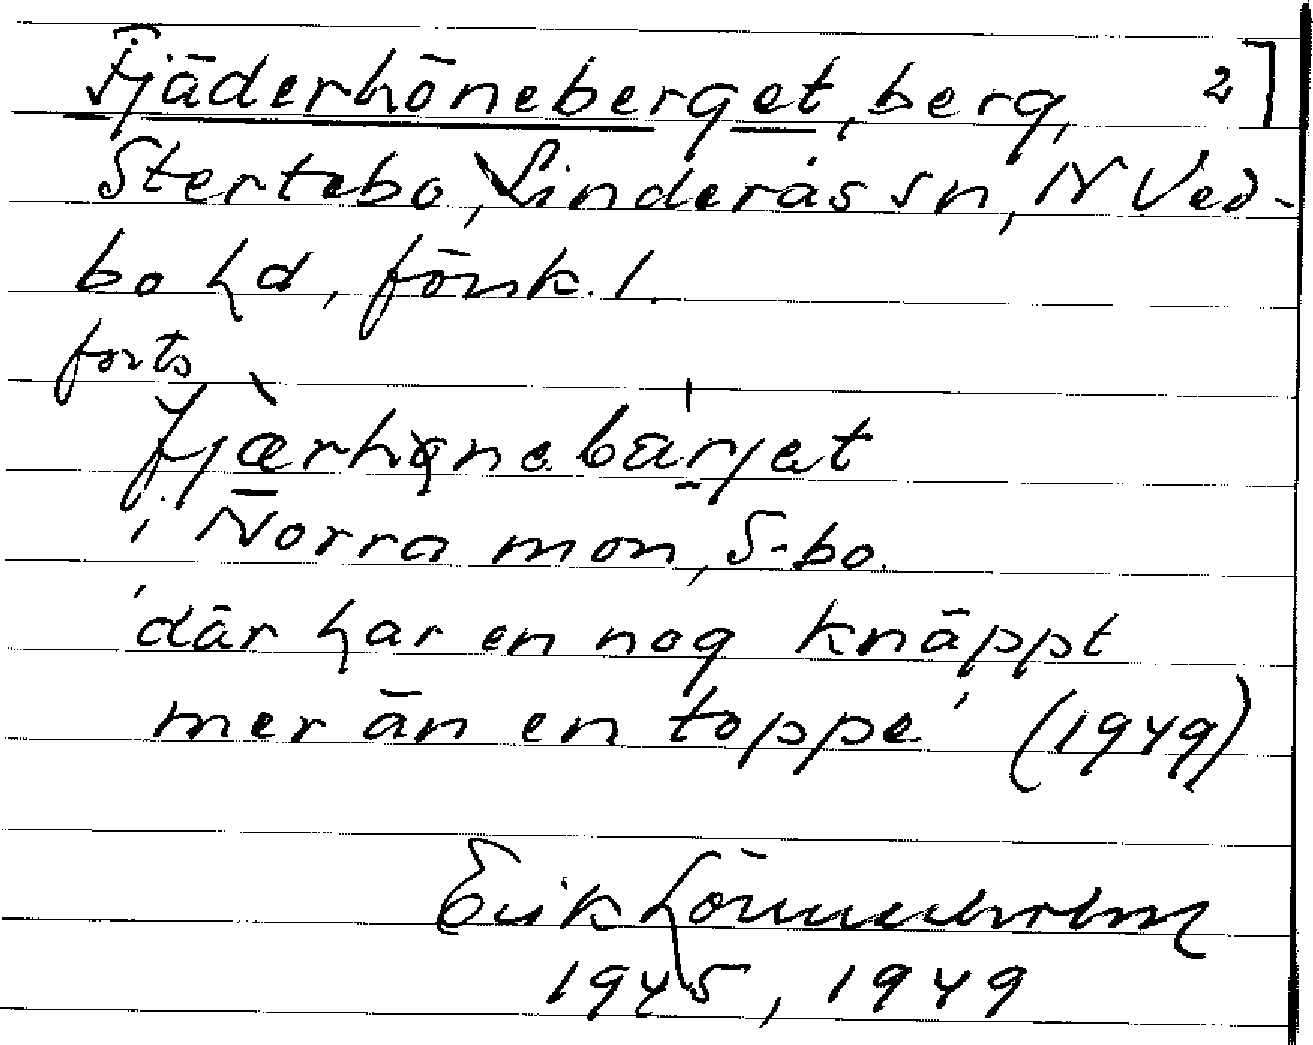 Fjäderhöneberget, berg, 2]
Stertebo, Linderås sn, N Ved-
bo hd, Jönk. l.
forts
fjærhønebärjet
i Norra mon, S-bo.
'där har en nog knäppt
mer än en toppe' (1949)
Erik Lönnerholm
1945, 1949